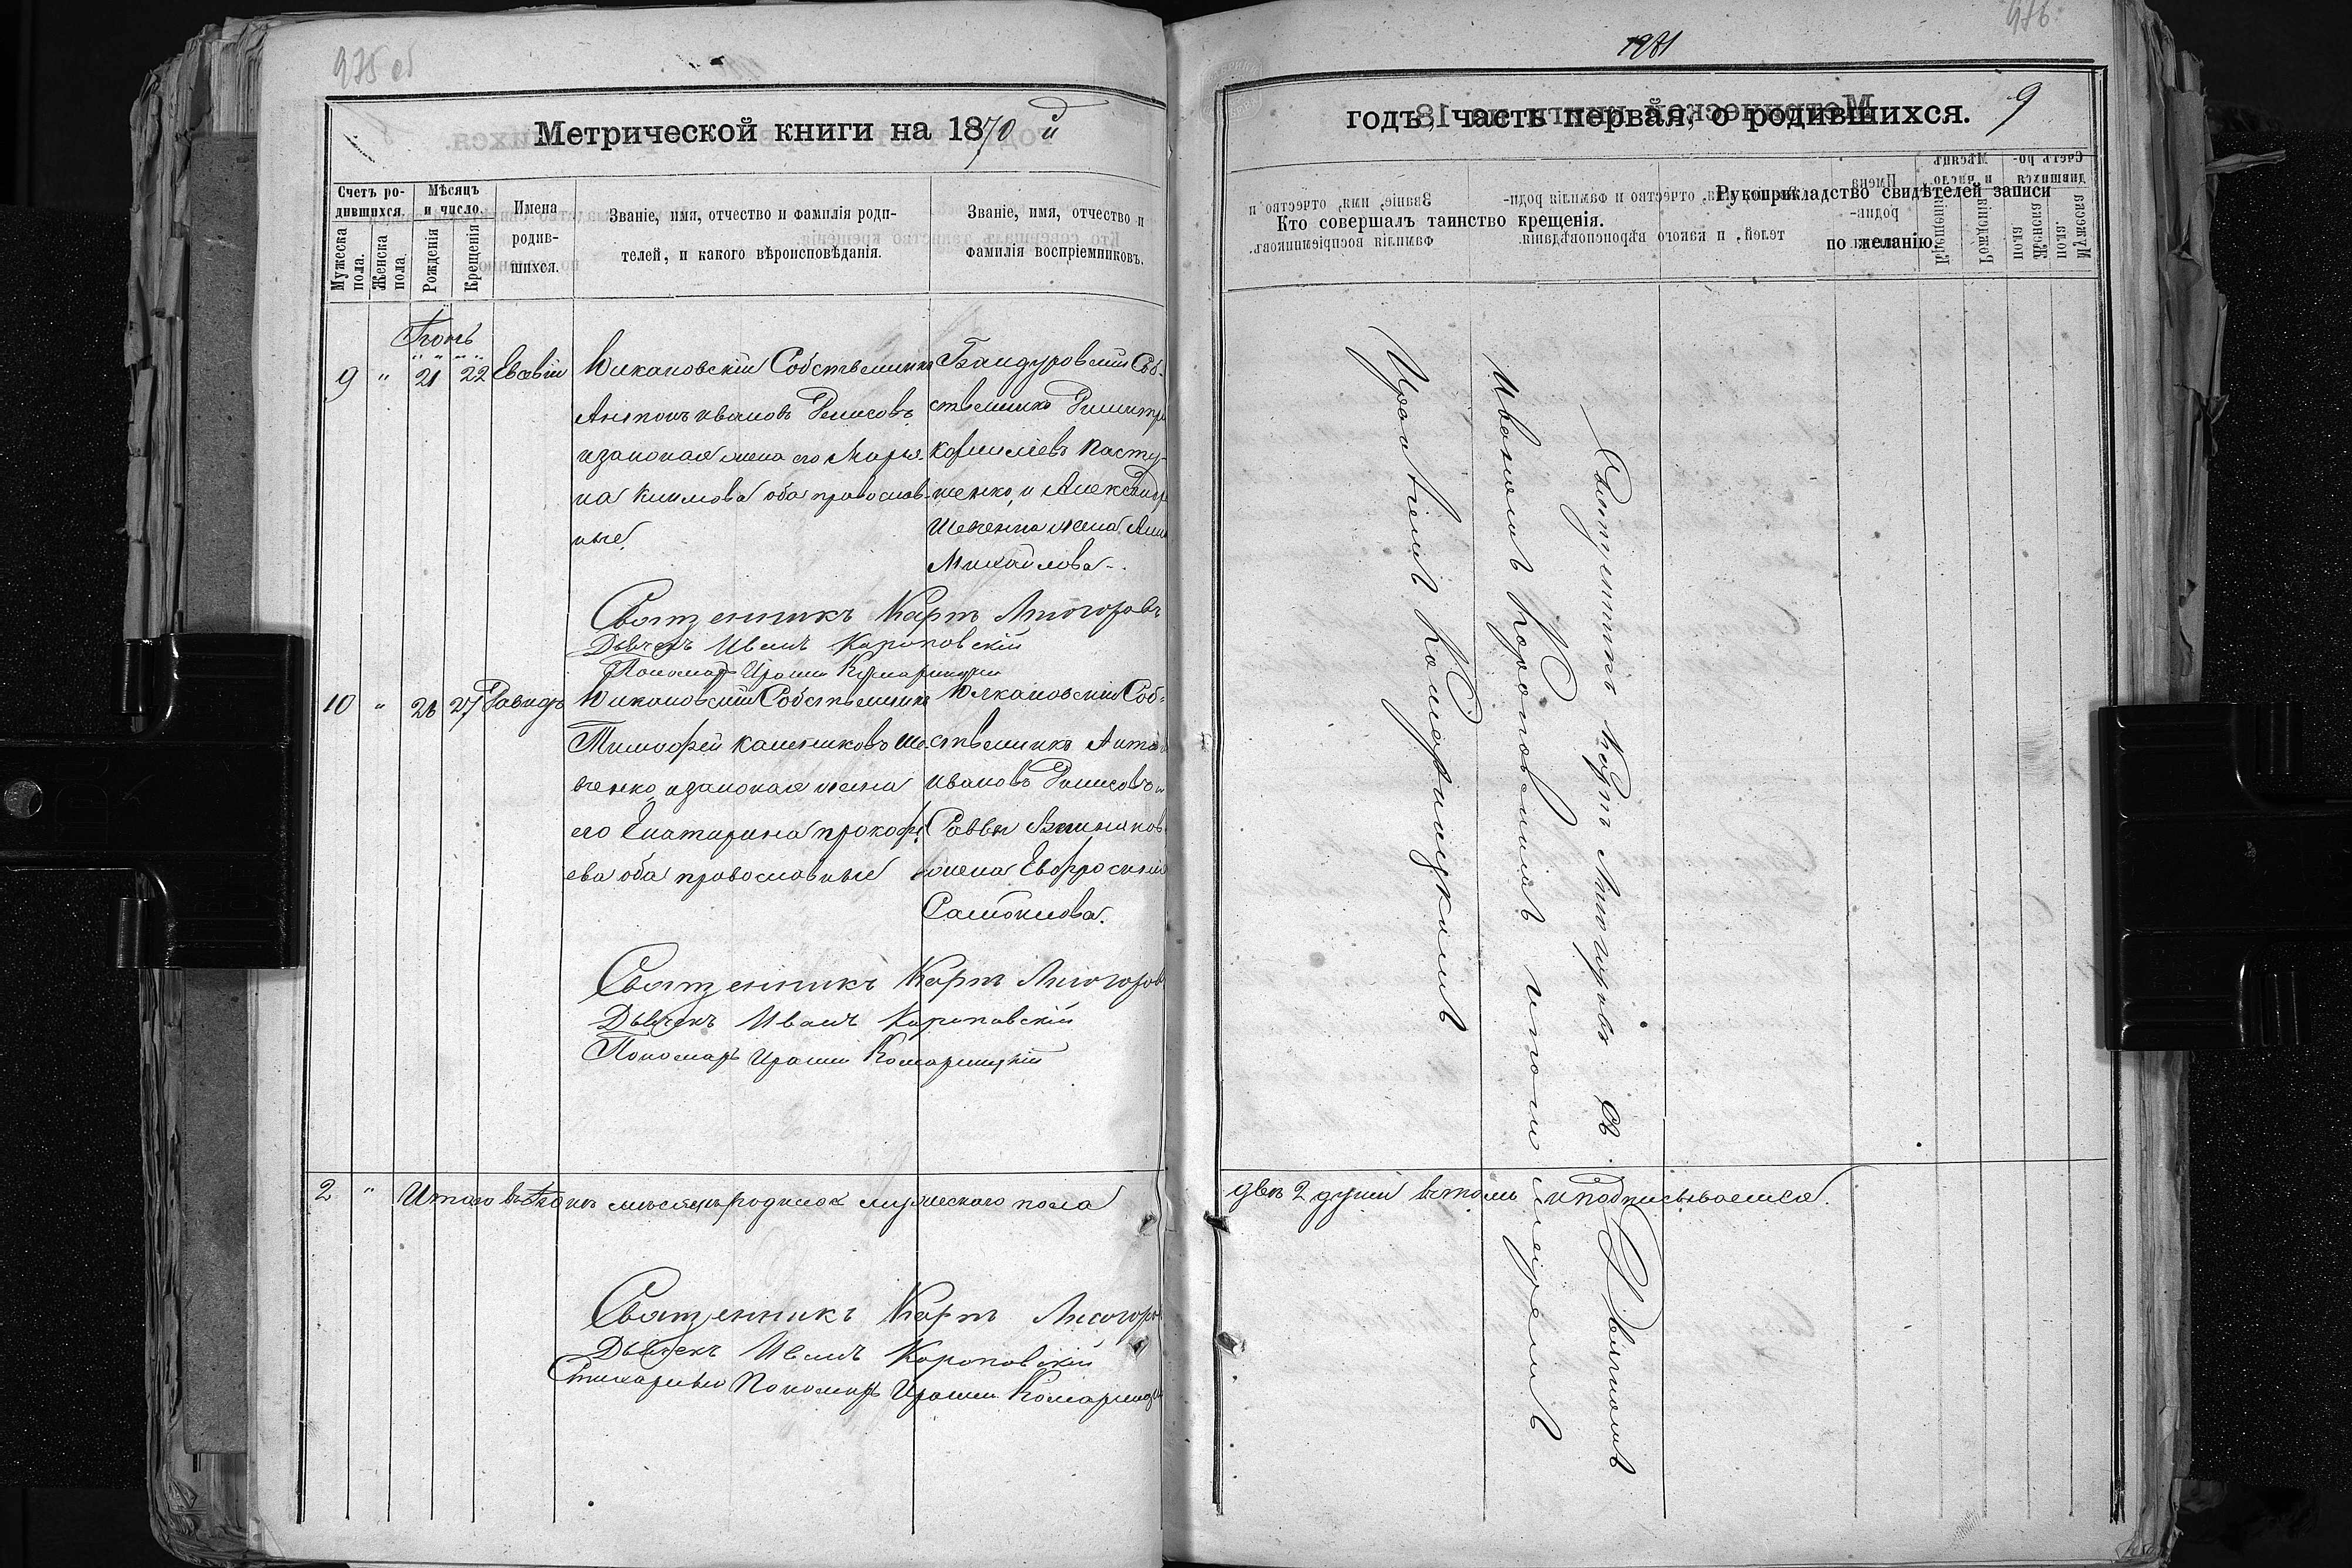 975 об
Метрической книги на 1870й
Счетъ ро-
дившихся.
Мужеска
пола.
Женска
пола
Мѣсяцъ
и число
Рожденія
Крещенія
Имена
родив-
шихся.
Званіе, имя, отчество и фамилія роди-
телей, и какого вѣроисповѣданія.
Званіе, имя, отчество и
фамилія воспріемниковъ.
Іюнь
9 " 21 22 Евсевій
Юикановскій Собственникъ
Антонъ Ивановъ Денисовъ,
изаконая жена его Марья-
на Климова оба православ-
ные.
Бандуровскій Соб-
ственникъ Димитрі
Корнилевъ Пасту-
шенко, и Александр
Шевченка жена Анн
Михайлова.
Священникъ Карпъ Лисогоровъ
Дьячекъ Иванъ Короповскій
Пономарь Комарницкій
10 " 26 27 Давидъ
Юикановскій Собственникъ
Тимофей Ше-
вченко изаконая жена
его Екатирина прокофь
ева оба православные
Юлкановскій Соб-
ственникъ Антон
Ивановъ Денисовъ и
Саввы
жена Евфросинія
Самойлова.
Священникъ Карпъ Лисогоров
Дьячекъ Иванъ Короповскій
Пономарь Комарницкій
2 " Итого въ Іюнѣ мѣсяцѣ родилось мужескаго пола
Священникъ Карпъ Лисогоро
Дьячекъ Иванъ Короповскій
Пономарь Комарницк
976.
1981
годъ, часть первая, о родившихся.
9
Кто совершалъ таинство крещенія.
Рукоприкладство свидѣтелей записи
по желанію
Священникъ Карпъ Лисогоровъ съ Дьячкомъ
Иваномъ Короповскимъ и пономаремъ
Комарницкимъ
двѣ 2 души вътомъ иподписываемся.